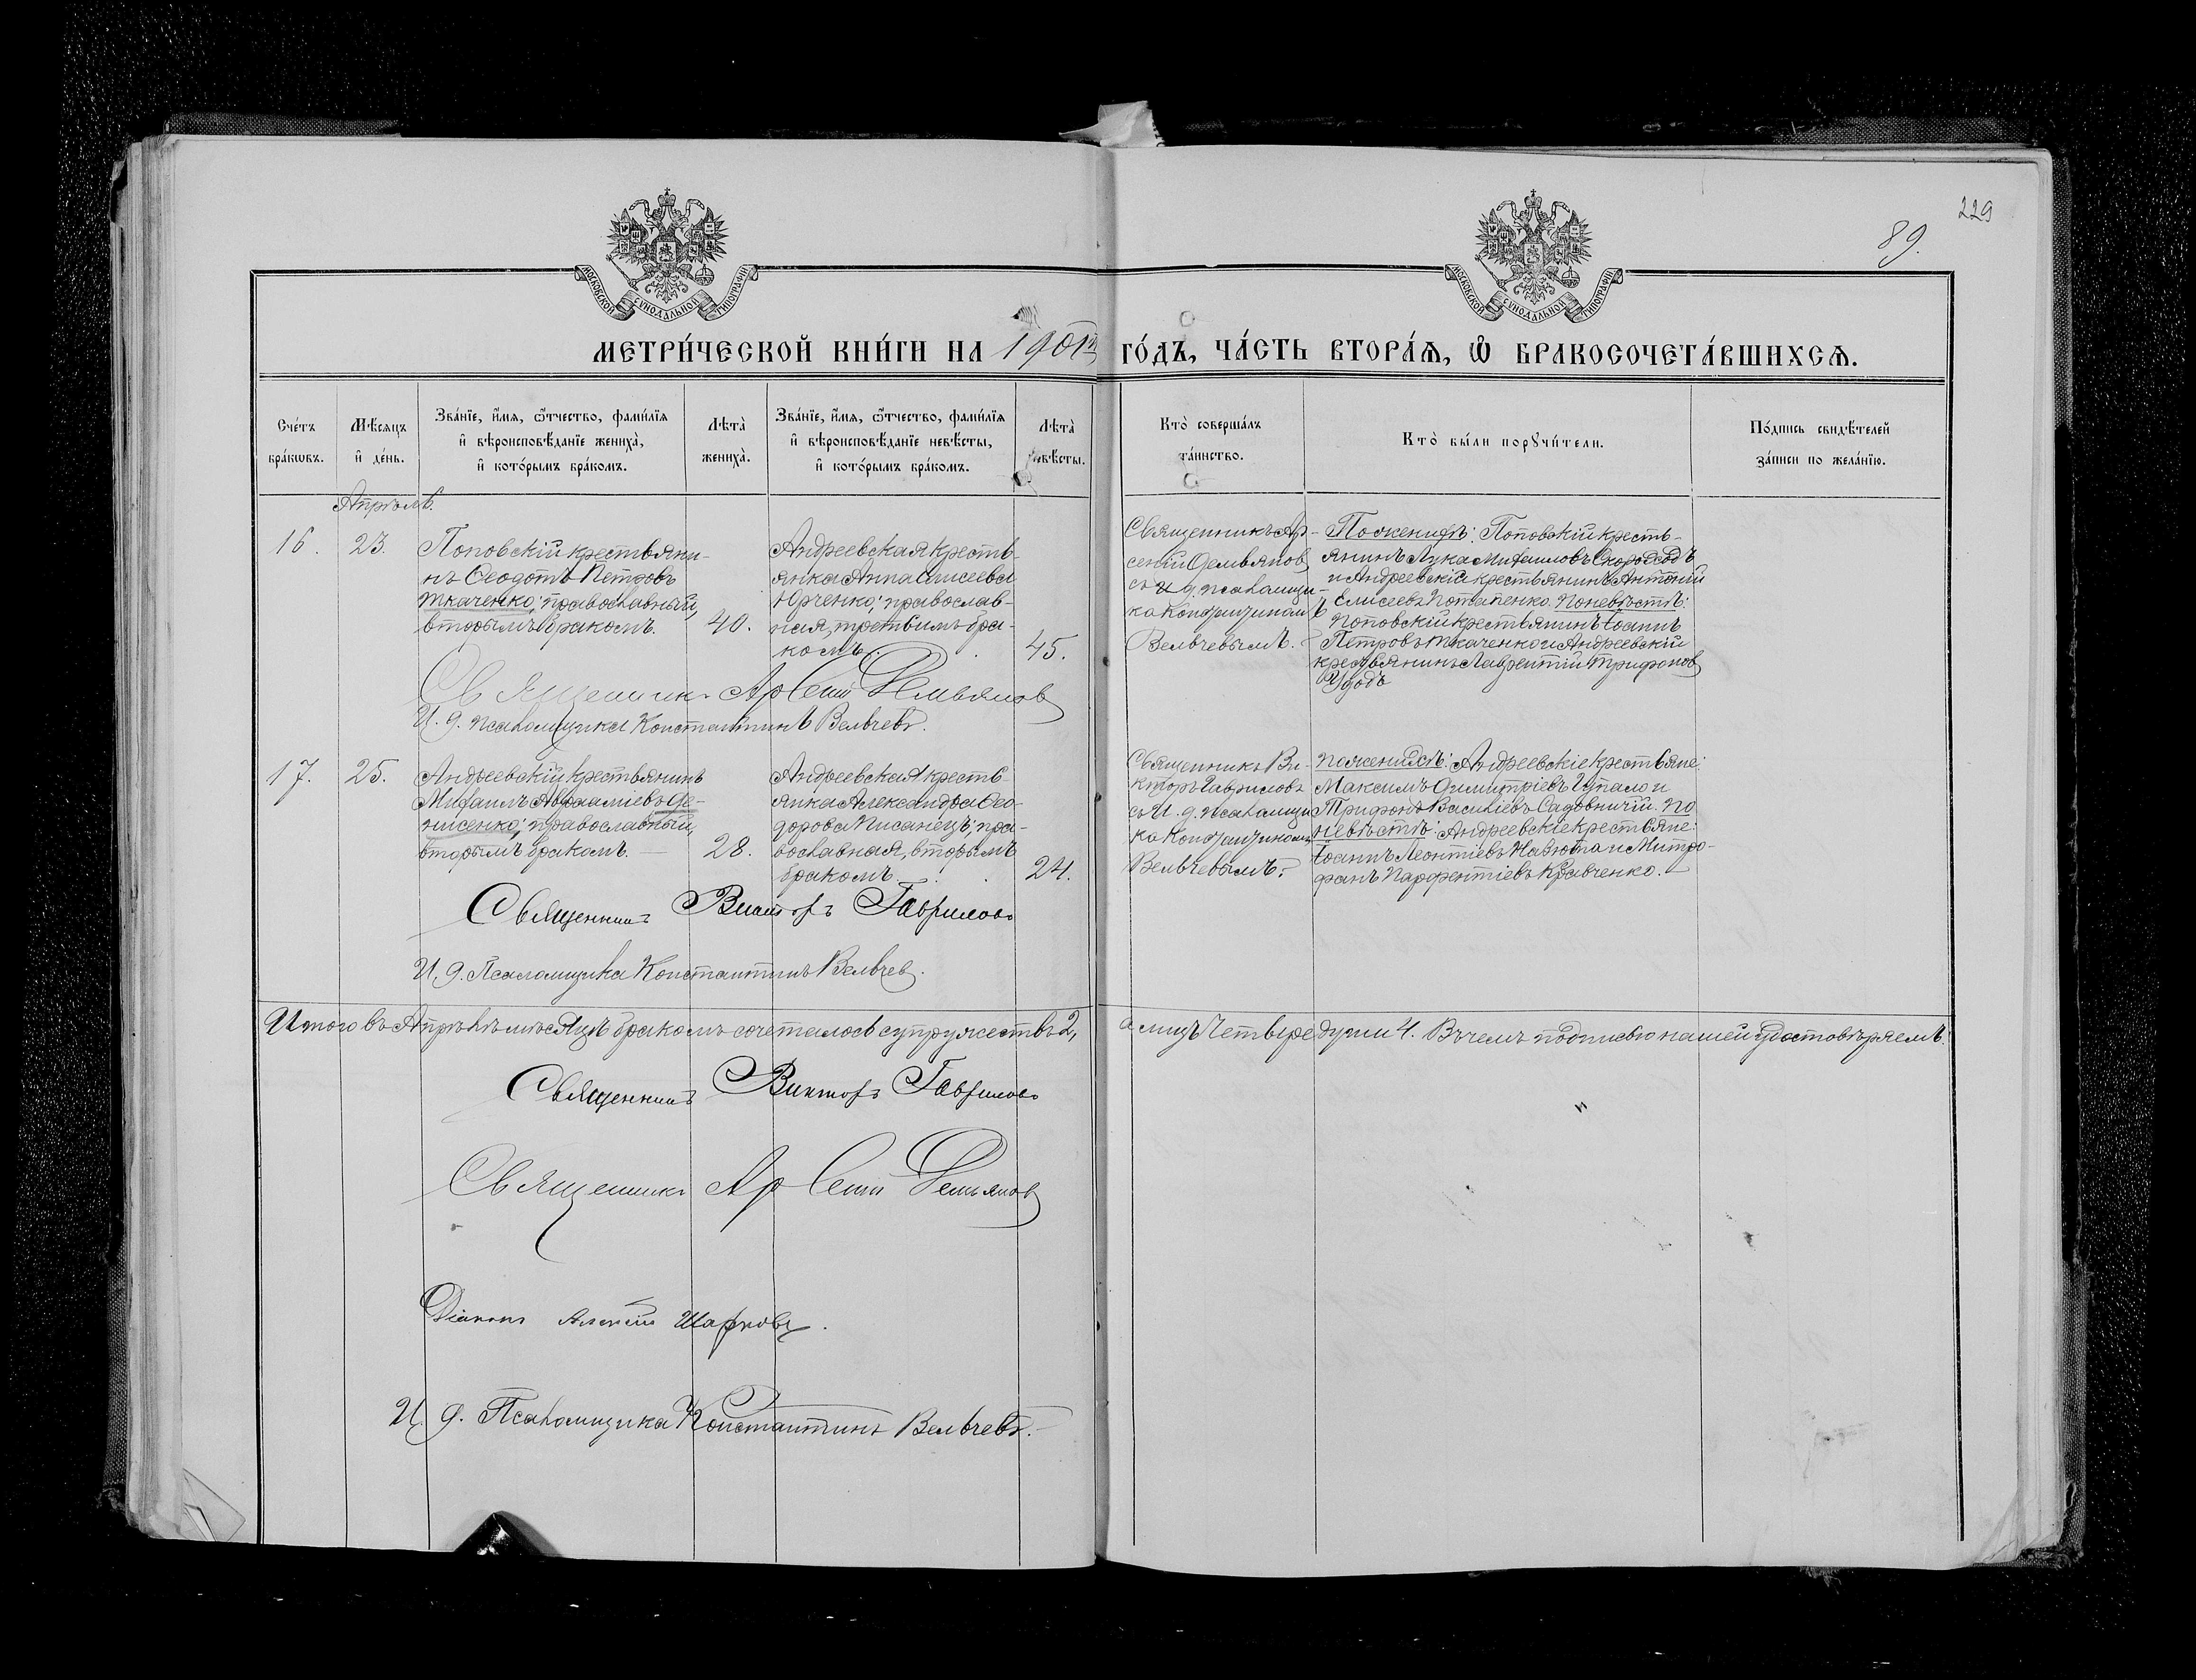 229
89.
МОСКОВСКОЙ СѴНОДАЛЬНОЙ ТИПОГРАФІИ
МОСКОВСКОЙ СѴНОДАЛЬНОЙ ТИПОГРАФІИ
МЕТРИ́ЧЕСКОЙ КНИ́ГИ НА 1901й ГО́ДЪ, ЧА́СТЬ ВТОРА́Ѧ, Ѽ БРАКОСОЧЕТА́ВШИХСѦ.
Сче́тъ
бра́кѡвъ.
Мѣ́сяцъ
и҆ де́нь.
Зва́нїе, и҆́мя, ѻ҆́тчество, фами́лїя
и҆ вѣроисповѣ́данїе жениха̀,
и҆ кото́рымъ бра́комъ.
Лѣта̀
жениха̀.
Зва́нїе, и҆́мя, ѻ҆́тчество, фами́лїя
и҆ вѣроисповѣ́данїе невѣ́сты,
и҆ кото́рымъ бра́комъ.
Лѣта̀
невѣ́сты.
Кто̀ соверша́лъ
та́инство.
Кто̀ бы́ли порꙋчи́тели.
По́дпись свидѣ́телей
за́писи по жела́нїю.
Апрѣль.
16.
23.
Поповскій крестьяни-
нъ Ѳеодотъ Петровъ
Ткаченко; православный,
вторымъ бракомъ.
40.
Андреевская кресть-
янка Анна Алисеева
Юрченко; православ-
ная, третьимъ бра-
комъ.
45.
Священникъ Ар-
сеній Демьяновъ
съ и. д. псаломщи-
ка Константиномъ
Вельчевымъ.
По женихѣ: Поповскій кресть-
янинъ Лука Михаиловъ Скороходъ
и Андреевскій крестьянинъ Антоній
Елисеевъ Потапенко. По невѣстѣ:
Поповскій крестьянинъ Іоаннъ
Петровъ Ткаченко и Андреевскій
крестьянинъ Лаврентій Трифонов
Удодъ
Священникъ Арсеній Демьянов
И. д. псаломщика Константинъ Вельчевъ.
17.
25.
Андреевскій крестьянинъ
Михаилъ Аѳанасіевъ Де-
нисенко; православный,
вторымъ бракомъ.
28.
Андреевская кресть-
янка Александра Ѳео-
дорова Писанецъ; пра-
вославная, вторымъ
бракомъ.
24.
Священникъ Ви-
кторъ Гавриловъ
съ И. д. псаломщи
ка Константиномъ
Вельчевымъ.
По женихѣ: Андреевскіе крестьяне:
Максимъ Димитріевъ Чупало и
Трифонъ Василіевъ Садовничій. По
невѣстѣ: Андреевскіе крестьяне:
Іоаннъ ЛеонтіевъНазюта и Митро-
фанъ Парфентіевъ Кравченко.
Священникъ Викторъ Гавриловъ
И. д. Псаломщика Константинъ Вельчев.
Итого въ Апрѣлѣ мѣсяцѣ бракомъ сочеталось супружествъ 2, а лицъ четыре души 4. Въ чемъ подписью нашей удостовѣряемъ:
Священникъ Викторъ Гавриловъ
Священникъ Арсеній Демьянов
Діаконъ Алексій Шарковъ.
И. д. Псаломщика Константинъ Вельчевъ.